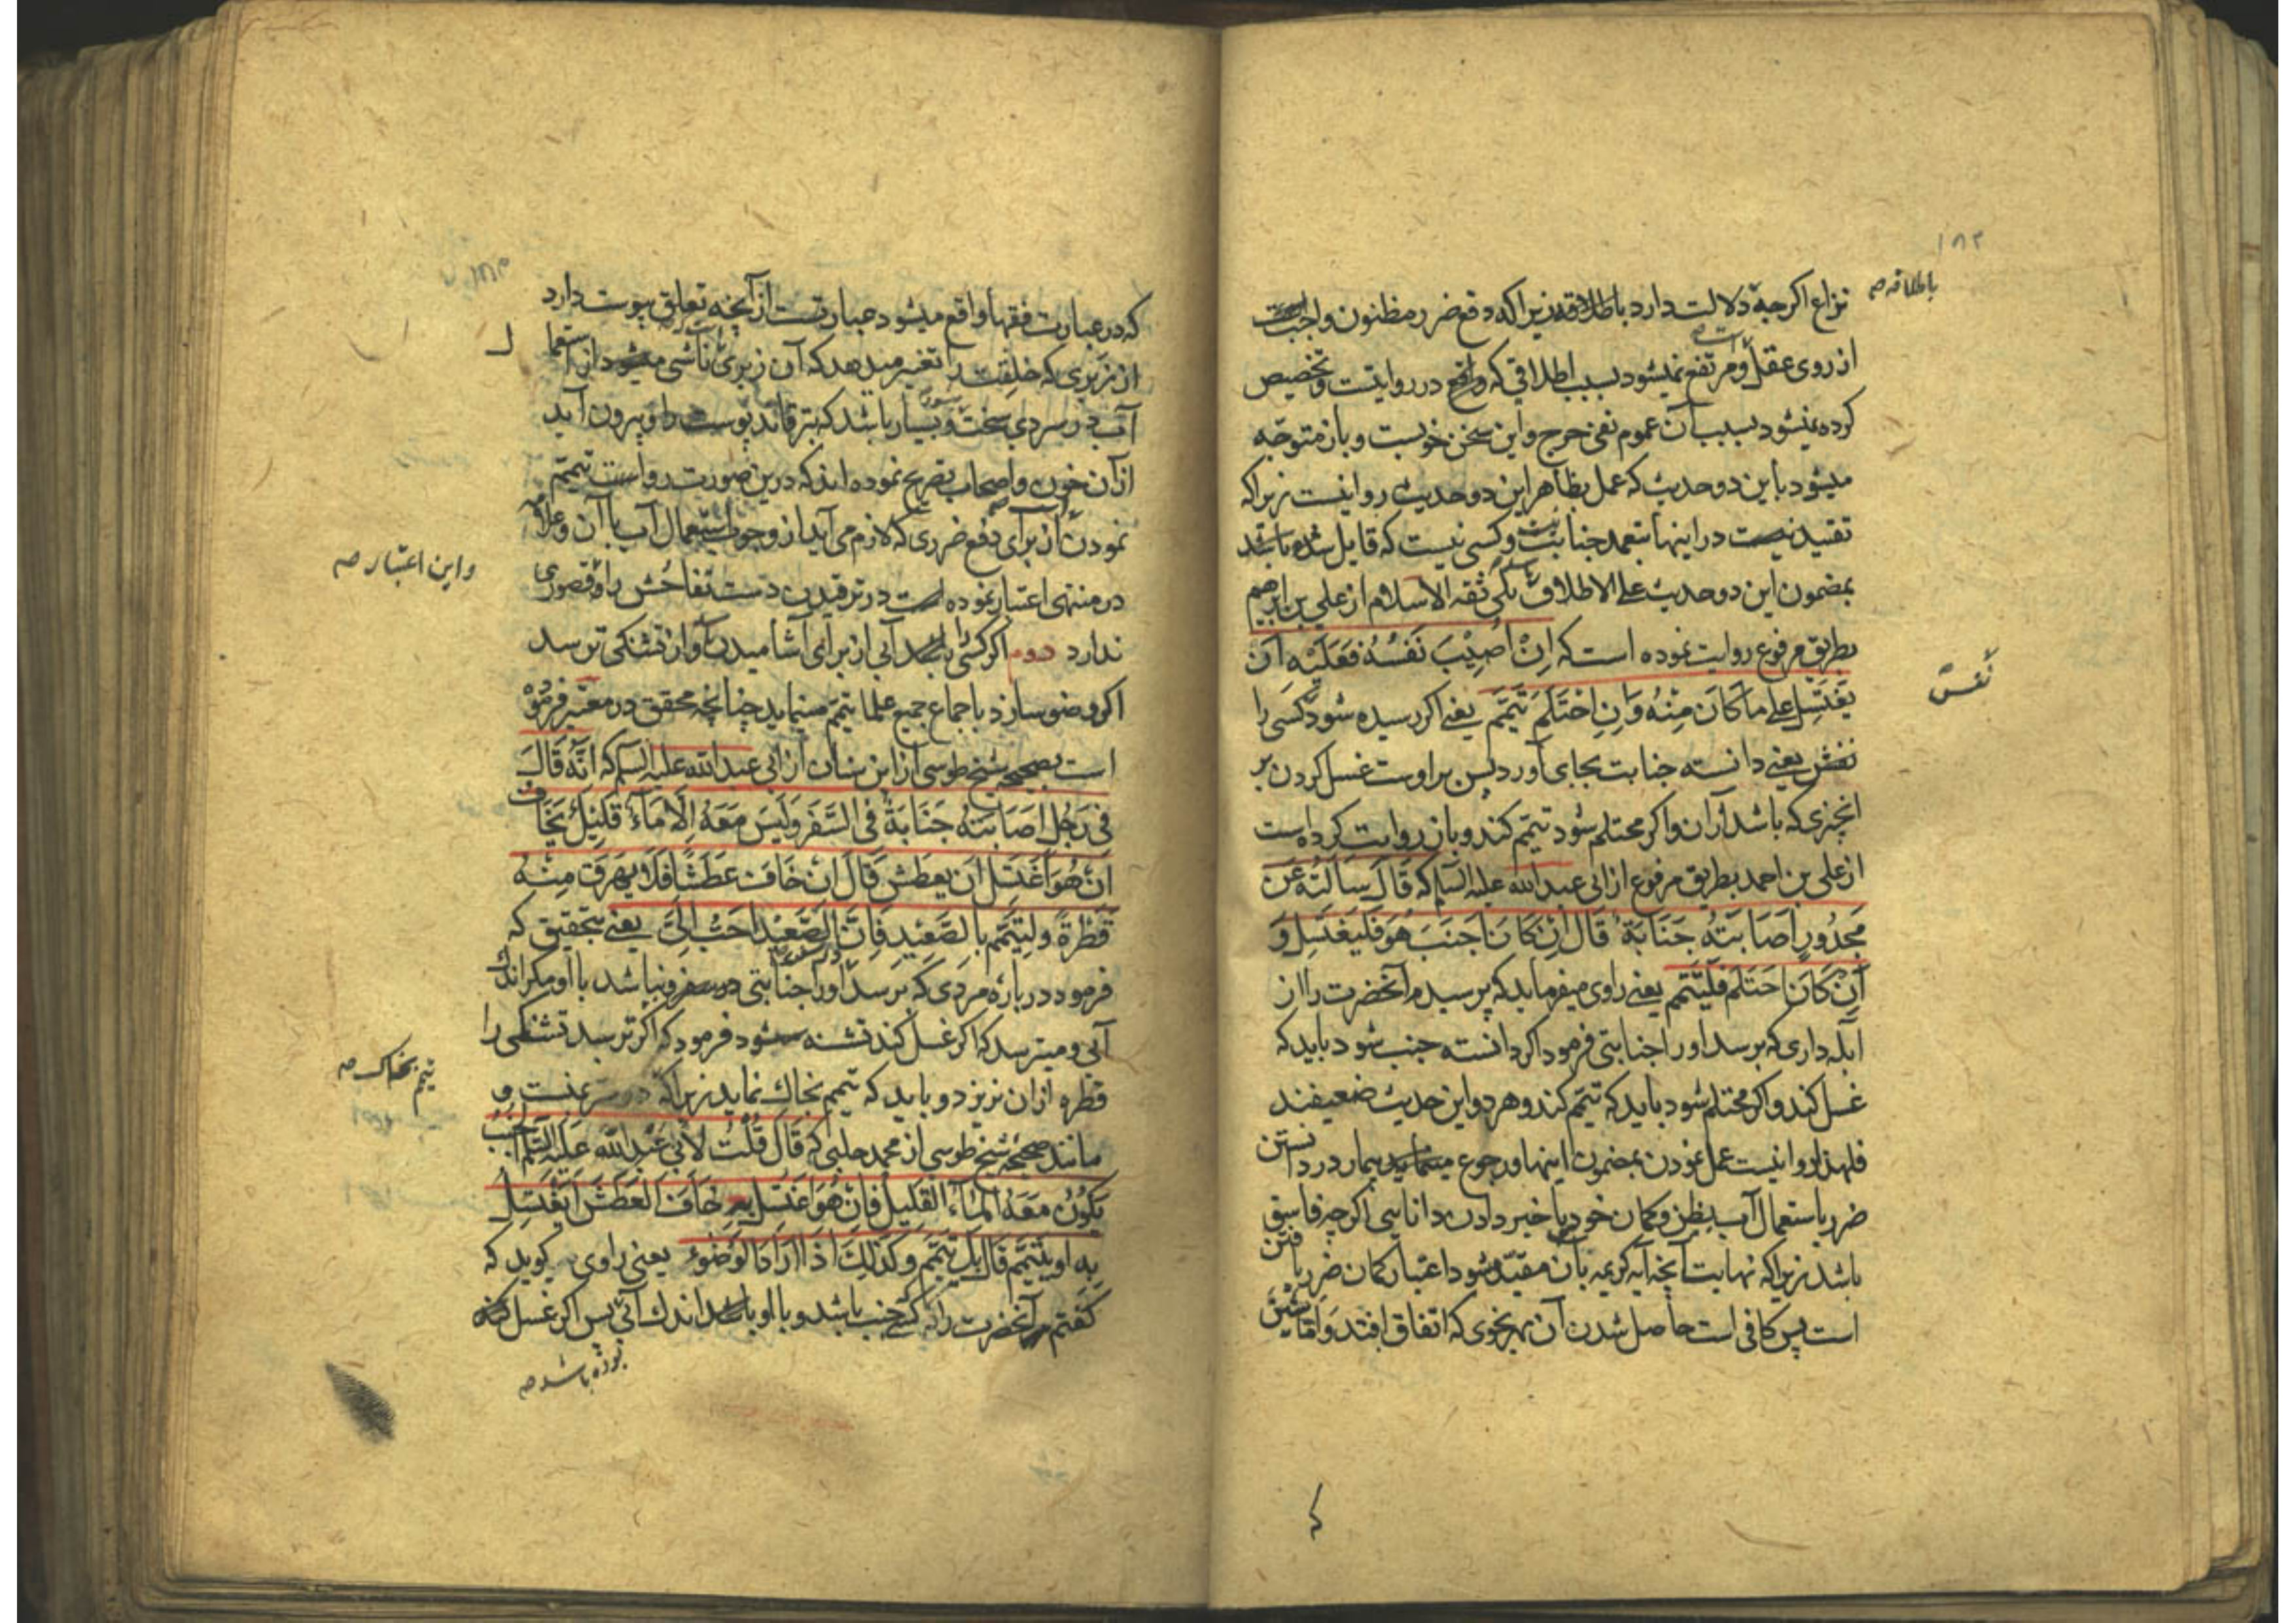 ۱۸۲
باطلاقه صه
نزاع اکرچه دلالت دارد باطلاقه زیرا که دفع ضرر مظنون واجبست
از روی عقل و مرتفع نمیشود بسبب اطلاقی که واقع در روایتست و تخصیص
کرده نمیشود بسبب آن عموم نفی حرج و این سخن خوبست و باز متوجّه
میشود باین دو حدیث که عمل بظاهر این دو حدیث روا نیست زیرا که
تقیید نیست در اینها بتعمد جنابت و کسی نیست که قایل شده باشد
بمضمون این دو حدیث علی الاطلاق یکی ثقه الاسلام از علی بن ابرهیم
بطریق مرفوع روایت نموده است که اِنْ اُصِیْبَ نَفْسُهُ فَعَلَیْهِ اَن
یَغْتَسِلَ علی مَا کَانَ مِنْهُ وَاِنِ احْتَلَمَ تَیَمَّم یعنی اکر رسیده شود کسی را
نفسش
نفسش یعنی دانسته جنابت بجای آورد پس بر اوست غسل کردن بر
انچیزی که باشد از ان و اکر محتلم شود تیمّم کند و باز روایت کرده است
از علی بن احمد بطریق مرفوع از ابی عبد الله علیه السلم که قَالَ سَاَلْتُهُ عَن
مَجْدُورٍ اَصَابَتْهُ جَنَابَةٌ قَالَ اِنْ کَانَ اَجْنَبَ هُوَ فَلْیَغْتَسِلْ وَ
اِنْ کَانَ احْتَلَمَ فَلْیَتَیَمَّم یعنی راوی میفرماید که پرسیدم آنحضرت را از
ابله داری که برسد او را جنابتی فرمود اکر دانسته جنب شود باید که
غسل کند و اکر محتلم شود باید که تیمّم کند و هر دو این حدیث ضعیفند
فلهذا روا نیست عمل نمودن بمضمون اینها و رجوع مینماید بیمار در دانستن
ضرر باستعمال آب بظن و کمان خود یا خبر دادن دانایی اکرچه فاسق
باشد زیرا که نهایت آنچه آیه کریمه بآن مقیّد شود اعتبار کمان ضرر یافتن
است پس کافی است حاصل شدن آن بهر نحوی که اتفاق افتد وامّا شَیْن
که
که در عبارت فقها واقع میشود عبارتست از آنچه تعلق بپوست دارد
از زبری که خلقت را تغییر میدهد که آن زبری ناشی میشود از استعمال
آب در سردی سخت و بسیار باشد که بترقاند پوست را و بیرون آید
از آن خون و اصحاب تصریح نموده اند که درین صورت رواست تیمّم
نمودن از برای دفع ضرری که لازم می آید از وجوب استعمال آب با آن و علامه
واین اعتبار صه
در منتهی اعتبار نموده است در ترقیدن دست تفاحُش را و قصوری
ندارد دوم اکر کسی را آبی از برای آشامیدن باشد و از تشنکی ترسد
اکر وضو سازد باجماع جمیع علما تیمّم مینماید چنانچه محقق در معتبر فرموده
است بصحیحه شیخ طوسی از ابن سنان از ابی عبد الله علیه السلم که اَنَّهُ قَالَ
فی رَجُلٍ اَصَابَتْهُ جَنَابَةٌ فی السَّفَرِ وَلَیْسَ مَعَهُ اِلَّا مَاءٌ قَلِیْلٌ یَخَافُ
اِنْ هُوَ اغْتَسَلَ اَن یَعْطَشَ قَالَ اِنْ خَافَ عَطَشًا فَلَا یُهَرِق مِنْهُ
قَطْرَةً وَلِیَتَیَمَّم بِالصَّعِیْدِ فَاِنَّ الصَّعِیْدَ اَحَبُّ اِلَیَّ یعنی بتحقیق که
فرمود درباره مردی که برسد او را جنابتی در سفر و نباشد با او مکر اندک
آبی و میترسد که اکر غسل کند تشنه شود فرمود که اکر ترسد تشنکی را
تیمم بخاک صه
قطره از ان نریزد و باید که تیمم بخاک نماید زیرا که
مانند صحیحه شیخ طوسی از محمد حلبی که قَالَ قُلْتُ لِاَبی عَبْدِ اللهِ عَلَیْهِ السَّلَم الجُنُبُ
یَکُوْنُ مَعَهُ المَاءُ القَلِیْلُ فَاِنْ هُوَ اغْتَسَلَ بِهِ خَافَ العَطَشَ اَیَغْتَسِلُ
بِهِ اَو یَتَیَمَّم قَالَ بَل یَتَیَمَّم وَکَذٰلِکَ اِذَا اَرَادَ الوُضُوءَ یعنی راوی کوید که
کفتم آنحضرت را که کسی جنب باشد و با او باشد اندک آبی پس اکر غسل کند
بوده باشد صه